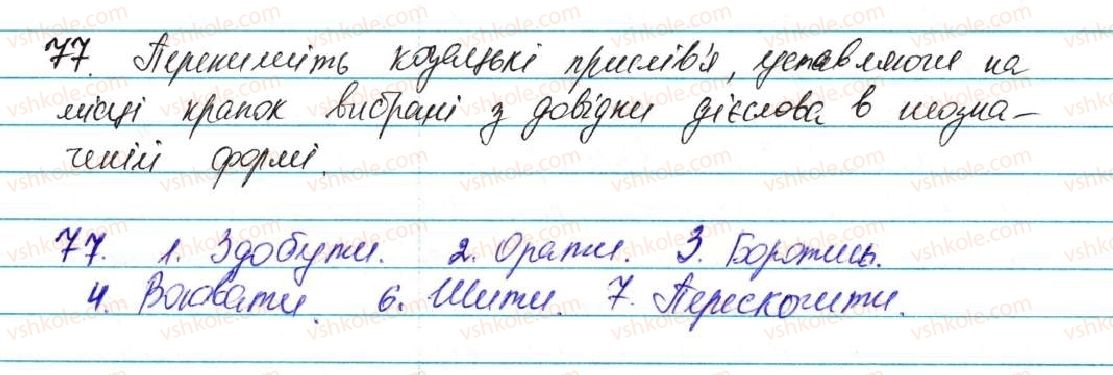 77. Перепишіть козацькі прислів'я, уставляючи на
місці крапок вибрані з довідки дієслова в неозна-
ченій формі.
77. 1. Здобути. 2. Орати. 3. Боротись.
4. Воювати. 6. Шити. 7. Перескочити.